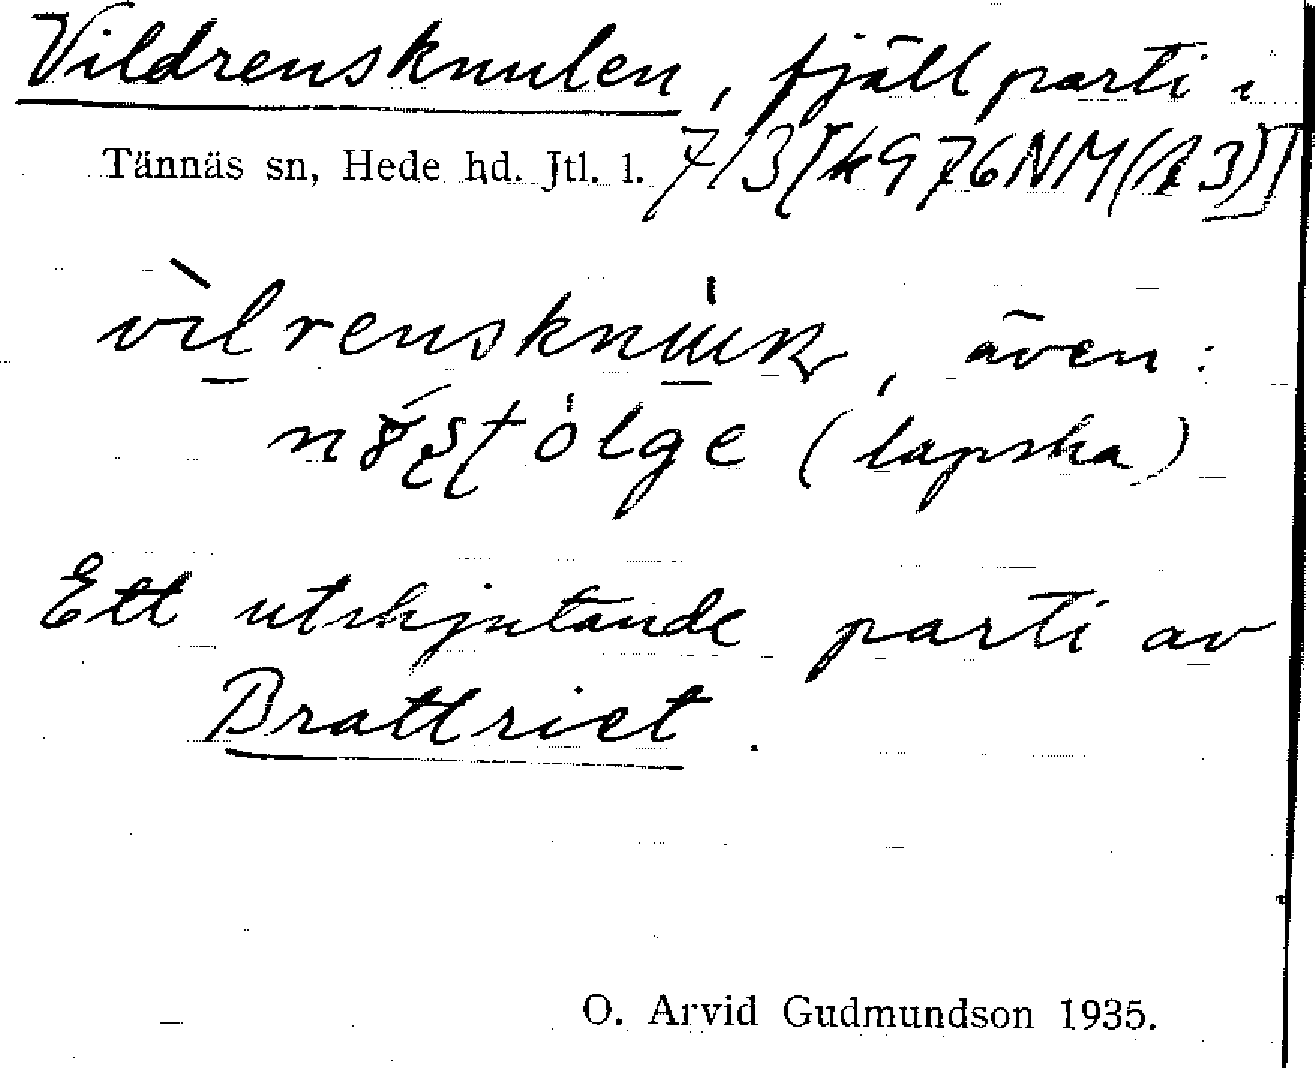 Vildrensknulen, fjällparti i
Tännäs sn, Hede hd. Jtl. l. 7/3 [k976NM(13)]
även:
(lapska)
Ett utskjutande parti av
Brattriet.
O. Arvid Gudmundson 1935.